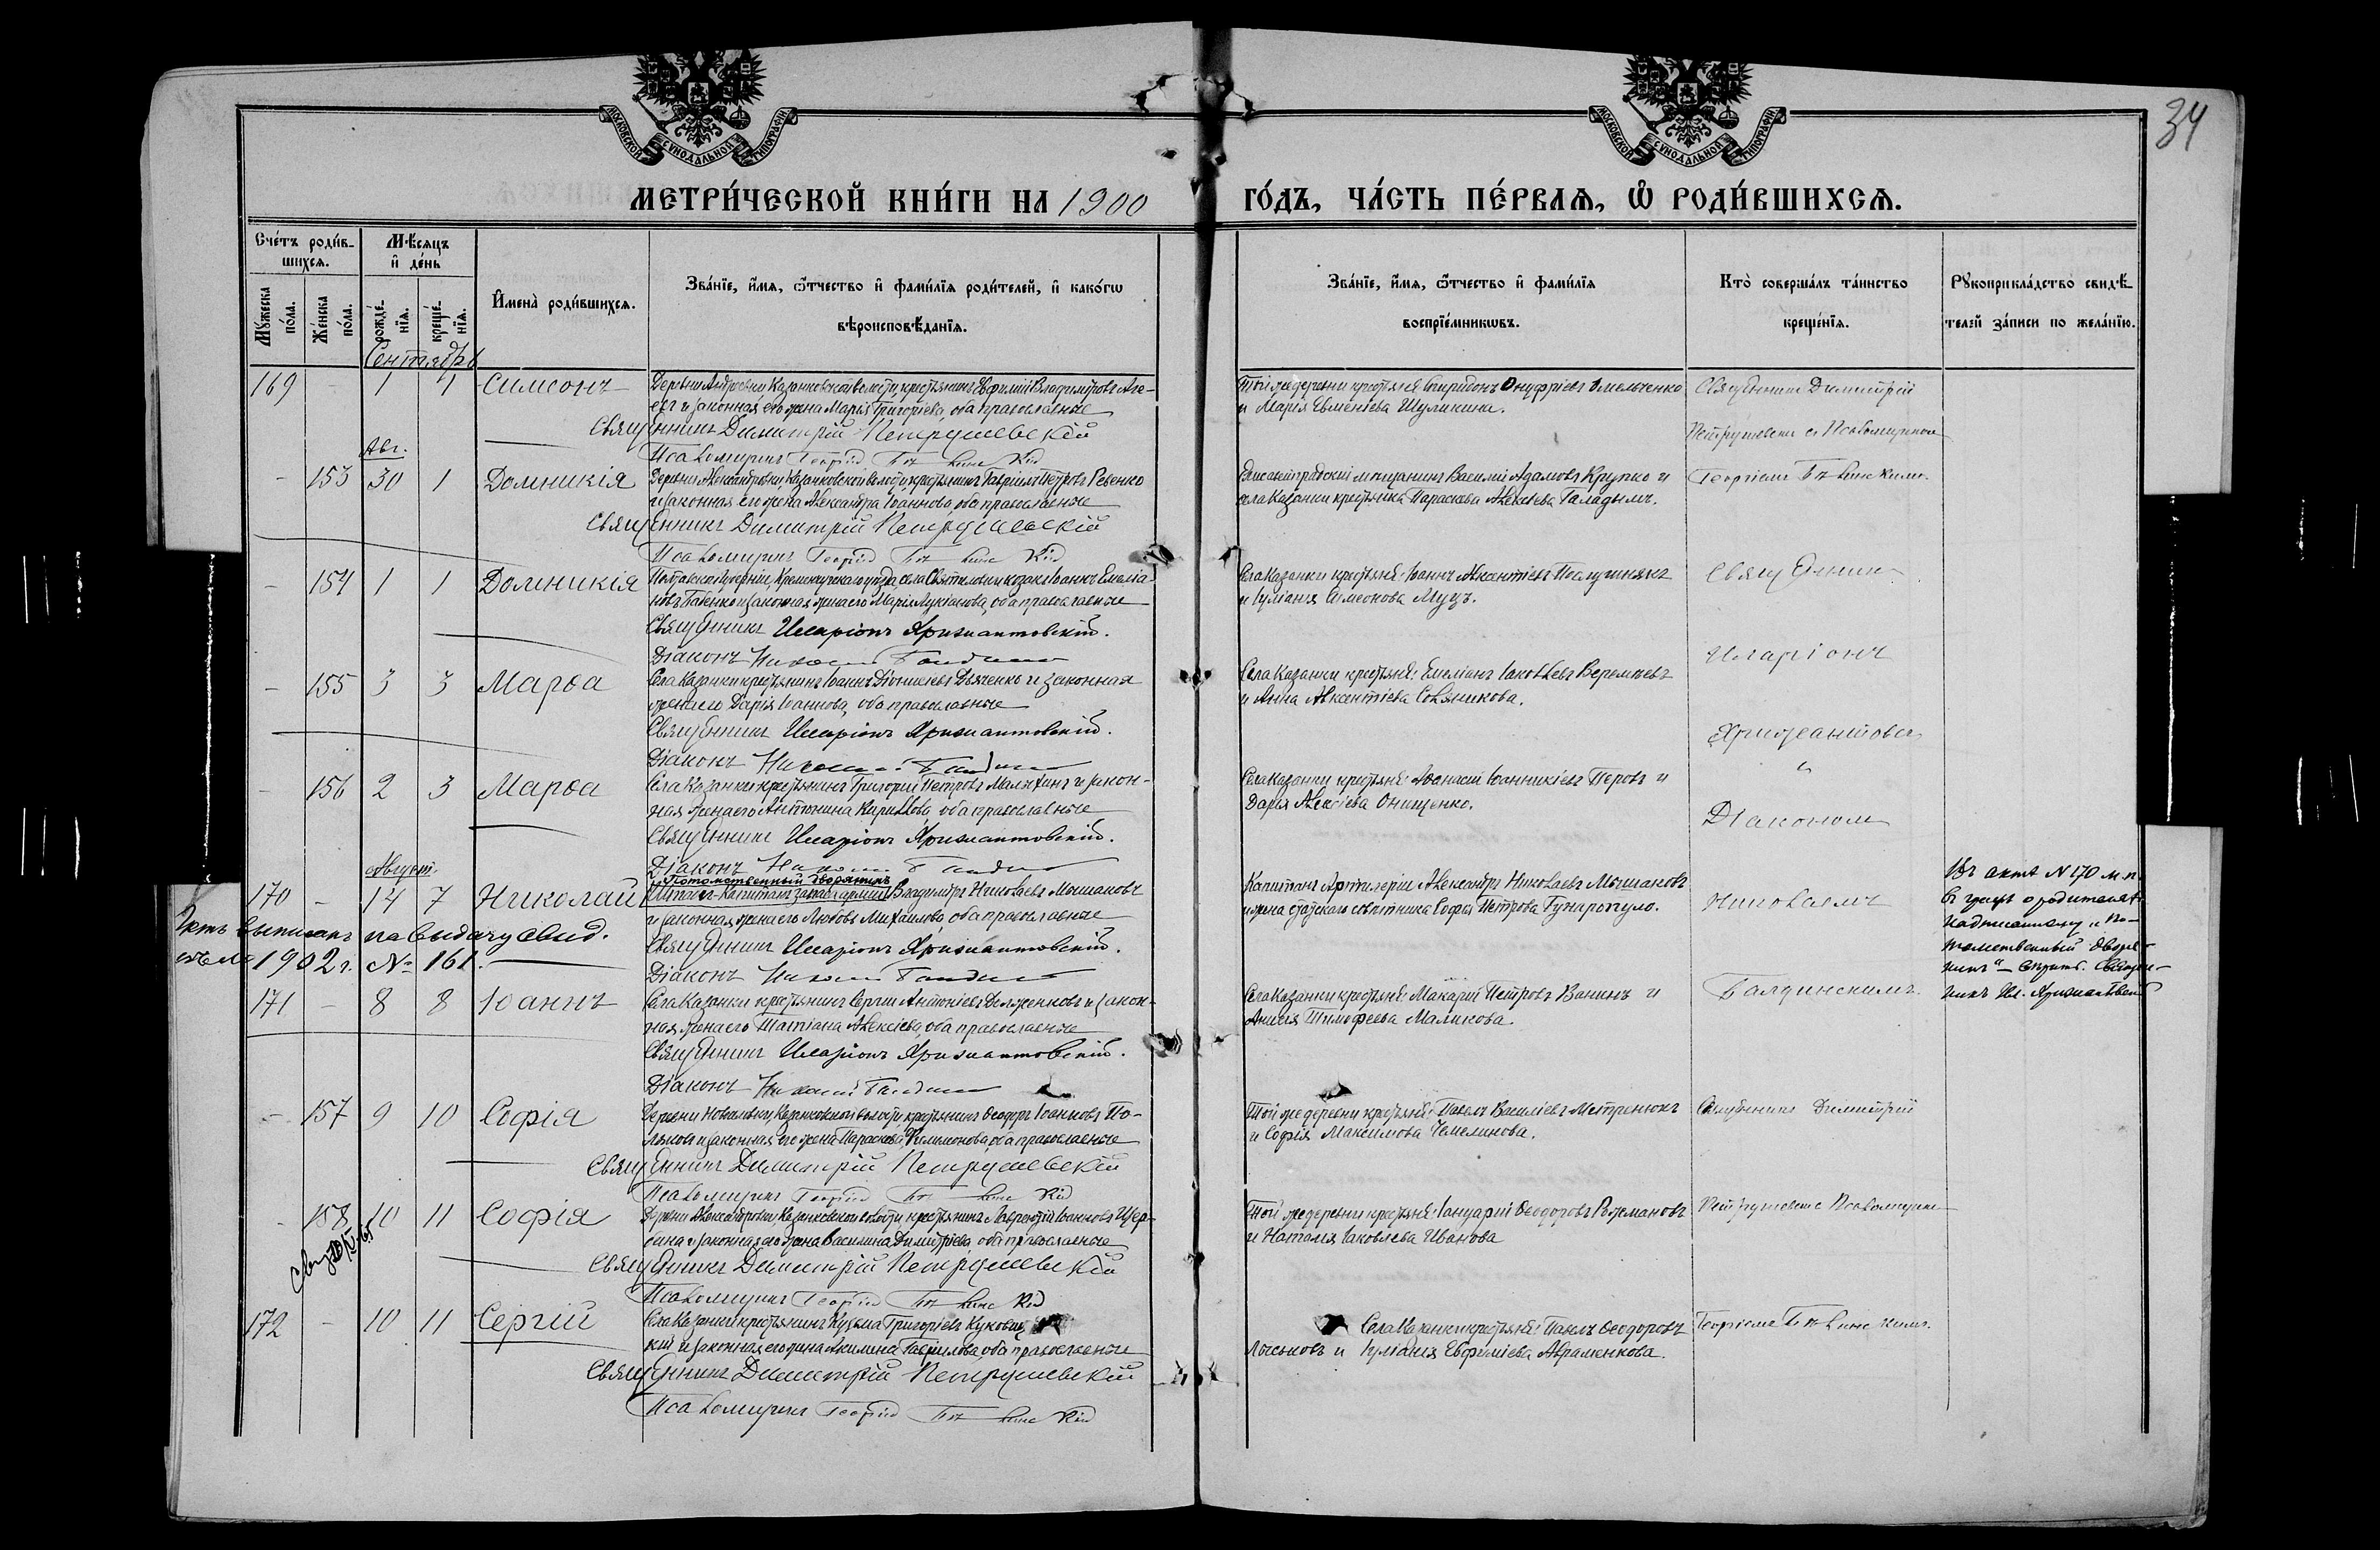 34
МОСКОВСКОЙ СѴНОДАЛЬНОЙ ТИПОГРАФІИ
МОСКОВСКОЙ СѴНОДАЛЬНОЙ ТИПОГРАФІИ
МЕТРИ́ЧЕСКОЙ КНИ́ГИ НА 1900 ГО́ДЪ, ЧА́СТЬ ПЕ́РВАѦ, Ѽ РОДИ́ВШИХСѦ.
Сче́тъ роди́в-
шихсѧ.
Мѣ́сѧцъ
и҆ де́нь
Мꙋ́жеска
по́ла.
Же́нска
по́ла.
рожде́-
нїѧ.
креще́-
нїѧ.
И҆мена̀ роди́вшихсѧ.
Зва́нїе, и҆́мѧ, ѻ҆́тчество и҆ фами́лїѧ роди́телей, и҆ како́гѡ
вѣроисповѣ́данїѧ.
Зва́нїе, и҆́мѧ, ѻ҆́тчество и҆ фами́лїѧ
воспрїе́мникѡвъ.
Кто̀ соверша́лъ та́инство
креще́нїѧ.
Рꙋкоприкла́дство свидѣ́-
телей за́писи по жела́нїю.
Сентябрь
169 - 1 1 Симеонъ
Деревни Андреевки Казанковской волости, крестьянинъ Евфимій Владиміровъ
и законная его жена Марія Григоріева, оба православные
Священникъ Димитрій Петрушевскій
Псаломщикъ Георгій
Той же деревни крестьяне Спиридонъ Онуфріевъ Омельченко
и Марія Евменіева Шуликина.
Священникъ Димитрій
Петрушевскій съ Псаломщикомъ
Авг.
- 153 30 1 Домникія
Деревни Александровки, Казанковской волости, крестьянинъ Гавріилъ Петровъ Ревенко
и законная его жена Александра Іоаннова, оба православные
Священникъ Димитрій Петрушевскій
Псаломщикъ Георгій
Елисаветградскій мѣщанинъ Василій Адамовъ Крупко и
села Казанки крестьянка Параскева Алексіева
Георгіемъ
- 154 1 1 Домникія
Полтавской губерніи, Кременчугскаго уѣзда, села козакъ Іоаннъ Емеліа-
новъ Бабенко и законная жена его Марія Лукіанова, оба православные
Священникъ Иларіонъ Хрисантовскій.
Діаконъ Николай
Села Казанки крестьяне: Іоаннъ Авксентіевъ
и Іуліанія Симеонова Муцъ.
Священник
- 155 3 3 Марѳа
Села Казанки крестьянинъ Іоаннъ Діонисіевъ Дьяченко и законная
жена его Дарія Іоаннова, оба православные
Священникъ Иларіонъ Хрисантовскій.
Діаконъ Николай
Села Казанки крестьяне: Емеліанъ Іаковлевъ Веремѣевъ
и Анна Авксентіева
Иларіонъ
Хрисантовск.
- 156 2 3 Марѳа
Села Казанки крестьянинъ Григорій Петровъ Малыхинъ и закон-
ная жена его Антонина Кириллова, оба православные
Священникъ Иларіонъ Хрисантовскій.
Діаконъ Николай
Села Казанки крестьяне: Аѳанасій Іоанникіевъ Перовъ и
Дарія Алексіева Онищенко.
и
Діакономъ
Августъ.
170 - 14 7 Николай
Потомственный дворянинъ
Штабсъ-Капитанъ запаса арміи Владиміръ Николаевъ Мошаковъ
и законная жена его Любовь Михаилова, оба православные
Священникъ Иларіонъ Хрисантовскій.
Діаконъ Николай
Капитанъ Артиллеріи Александръ Николаевъ Мошаковъ
и жена статскаго совѣтника Софія Петрова Гунаропуло.
Николаемъ
Въ актѣ N 170 м.п.
въ графѣ о родителяхъ
надписанному "по-
томственный дворя-
нинъ" - Священ-
никъ Ил. Хрисантовскій
Актъ выписанъ на выдачу свид.
1902 г. № 161.
171 - 8 8 Іоаннъ
Села Казанки крестьянинъ Сергій Антоніевъ Долженковъ и закон-
ная жена его Татіана Алексіева, оба православные
Священникъ Иларіонъ Хрисантовскій.
Діаконъ Николай
Села Казанки крестьяне: Макарій Петровъ Ванинъ и
Анисія Тимофеева Маликова.
Балдинскимъ
- 157 9 10 Софія
Деревни Новоселовки, Казанковской волости, крестьянинъ Ѳеодоръ Іоанновъ По-
и законная его жена Параскева Филимонова, оба православные
Священникъ Димитрій Петрушевскій
Псаломщикъ Георгій
Той же деревни крестьяне: Павелъ Василіевъ Метренюкъ
и Софія Максимова Чемелинова.
Священникъ Димитрій
- 158 10 11 Софія
Деревни Александровки, Казанковской волости, крестьянинъ Лаврентій Іоанновъ Щер-
бина и законная его жена Василина Димитріева, оба православные
Священникъ Димитрій Петрушевскій
Псаломщикъ Георгій
Той же деревни крестьяне: Іануарій Ѳеодоровъ Рожмановъ
и Наталія Іаковлева Иванова
Петрушевскій съ Псаломщикомъ
172 - 10 11 Сергій
Села Казанки крестьянинъ Кузьма Григоріевъ Куковиц-
кій и законная его жена Акилина Гавріилова, оба православные
Священникъ Димитрій Петрушевскій
Псаломщикъ Георгій
Села Казанки крестьяне: Павелъ Ѳеодоровъ
Лысыковъ и Іуліанія Евфиміева Авраменкова.
Георгіемъ